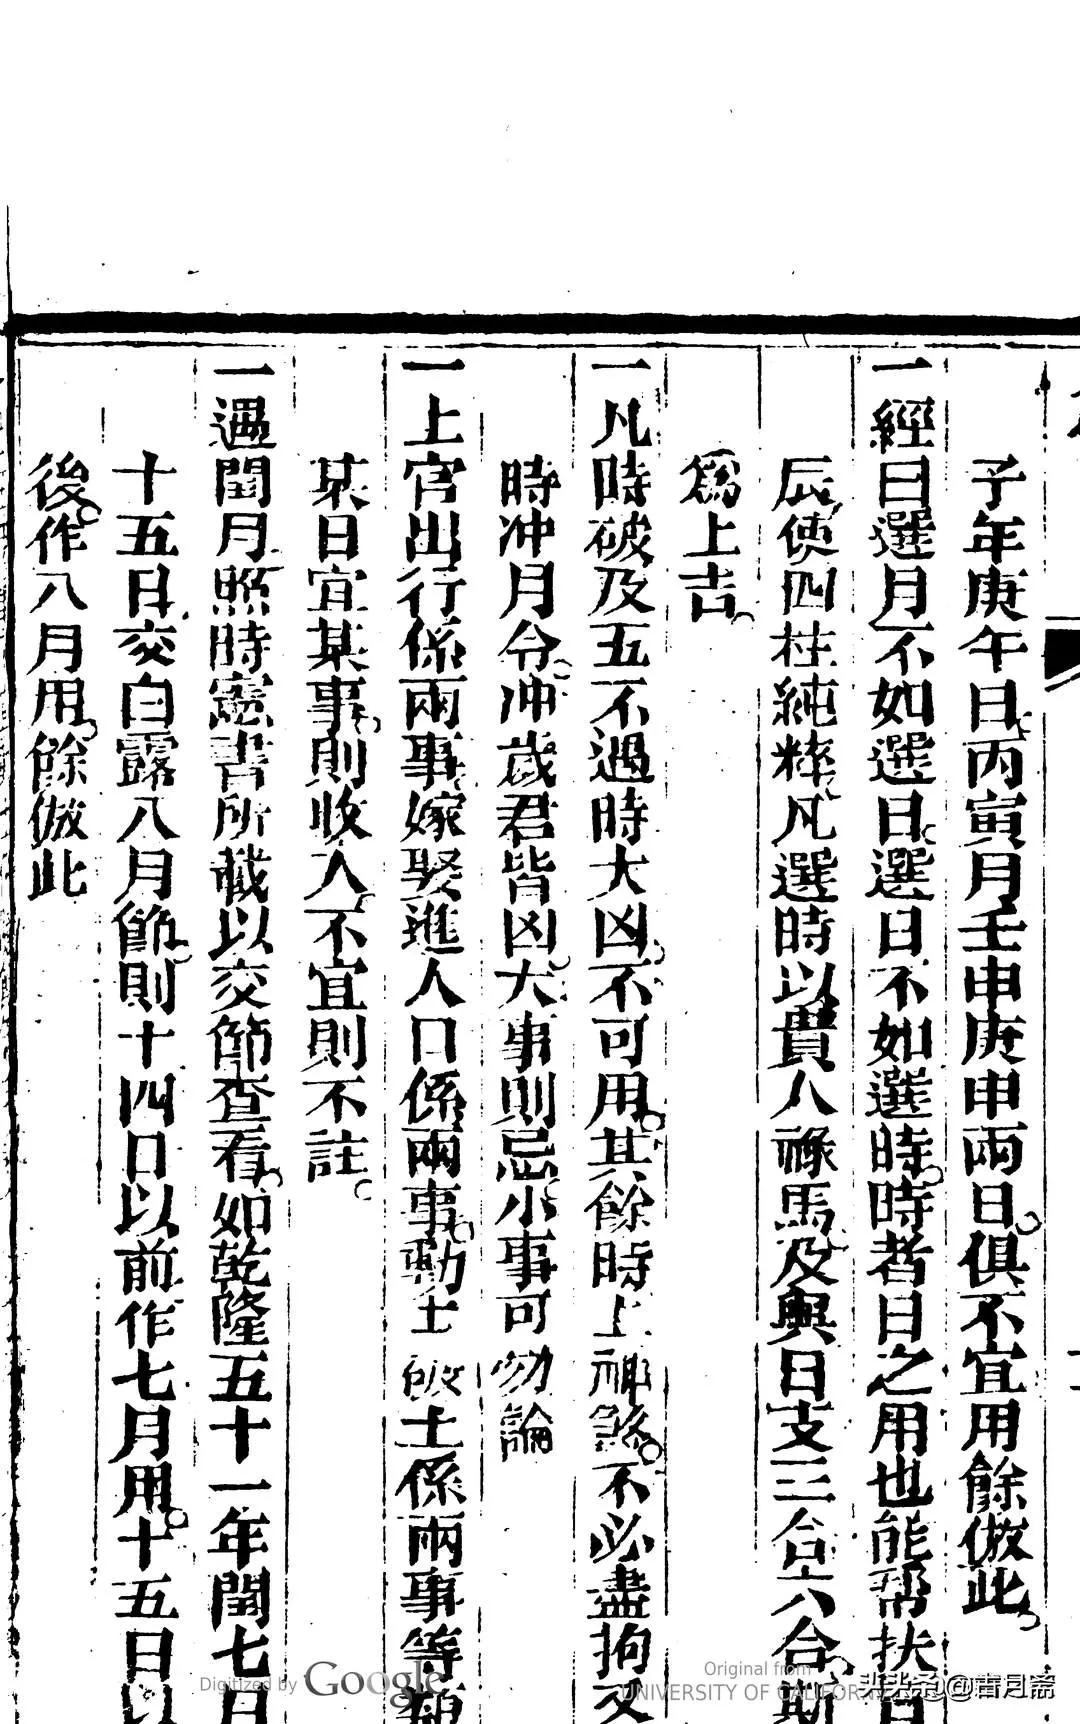 子年庚午日。丙寅月壬申庚申兩日。俱不宜用餘倣此。
一經曰選月不如選日。選日不如選時。時者日之用也能幇扶日
辰。使四柱純粹。凡選時以貴人祿馬。及與日支三合六合。斯
爲上吉。
一凡時破及五不遇時大凶。不可用。其餘時上神煞。不必盡拘又
時冲月令。冲歲君皆凶。大事則忌小事可勿論
一上官出行係兩事。嫁娶進人口係兩事。動土破土係兩事等類
某日宜某事。則收入。不宜則不註。
一遇閏月。照時憲書所載以交節查看。如乾隆五十一年閏七月
十五日交白露八月節。則十四日以前作七月用。十五日以
後。作八月用。餘倣此
Digitized by Google
Original from
UNIVERSITY OF CALIFORNIA
头条@吉月斋